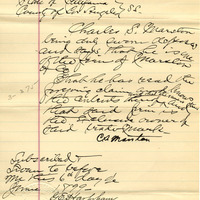 State of California
County of Los Angeles } S.S.
Charles S. Marston
being duly sworn deposes
and says that he is one
of the firm of Marston
& Co.
That he has read the
foregoing claim
the contents
that said firm is
the owner of
said trade Mark
C S Marston
Subscribed &
Sworn to before
me this 6th day of
June 1899